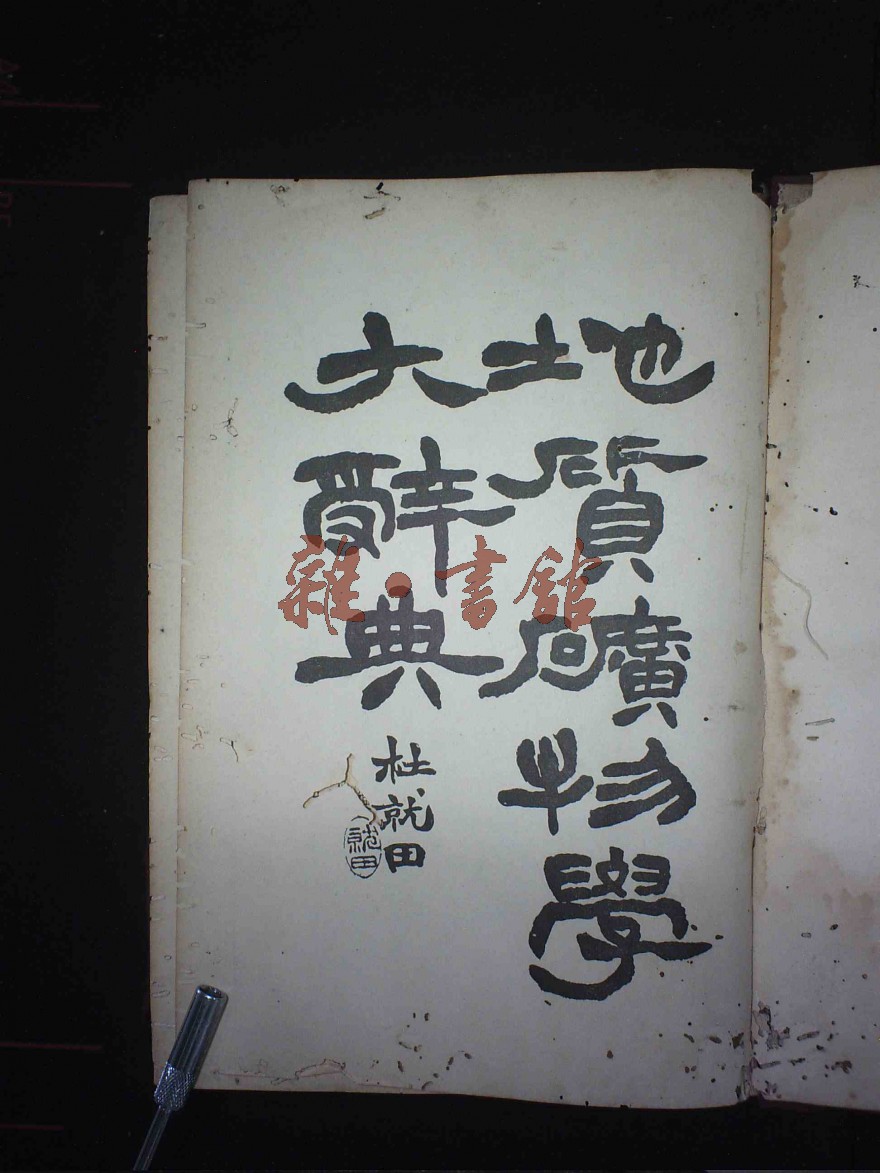 地質礦物學
大辭典
杜就田
就田
雜·書館